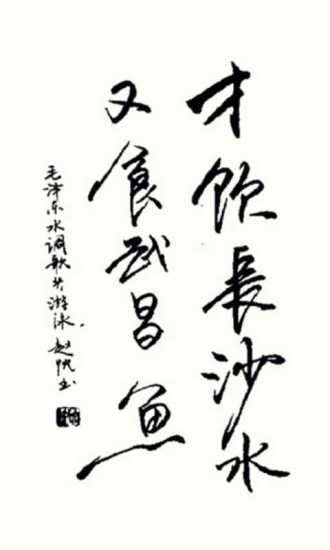 才饮長沙水
又食武昌鱼
毛泽东水调歌头游泳 赵